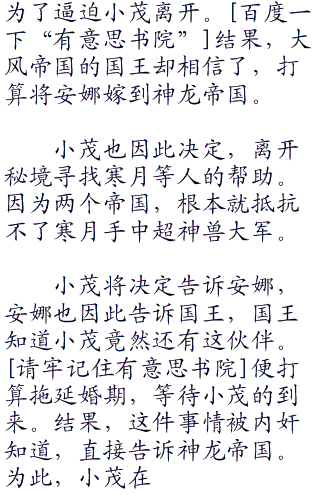 为了逼迫小茂离开。[百度一
下“有意思书院”]结果，大
风帝国的国王却相信了，打
算将安娜嫁到神龙帝国。
小茂也因此决定，离开
秘境寻找寒月等人的帮助。
因为两个帝国，根本就抵抗
不了寒月手中超神兽大军。
小茂将决定告诉安娜，
安娜也因此告诉国王，国王
知道小茂竟然还有这伙伴。
[请牢记住有意思书院]便打
算拖延婚期，等待小茂的到
来。结果，这件事情被内奸
知道，直接告诉神龙帝国。
为此，小茂在